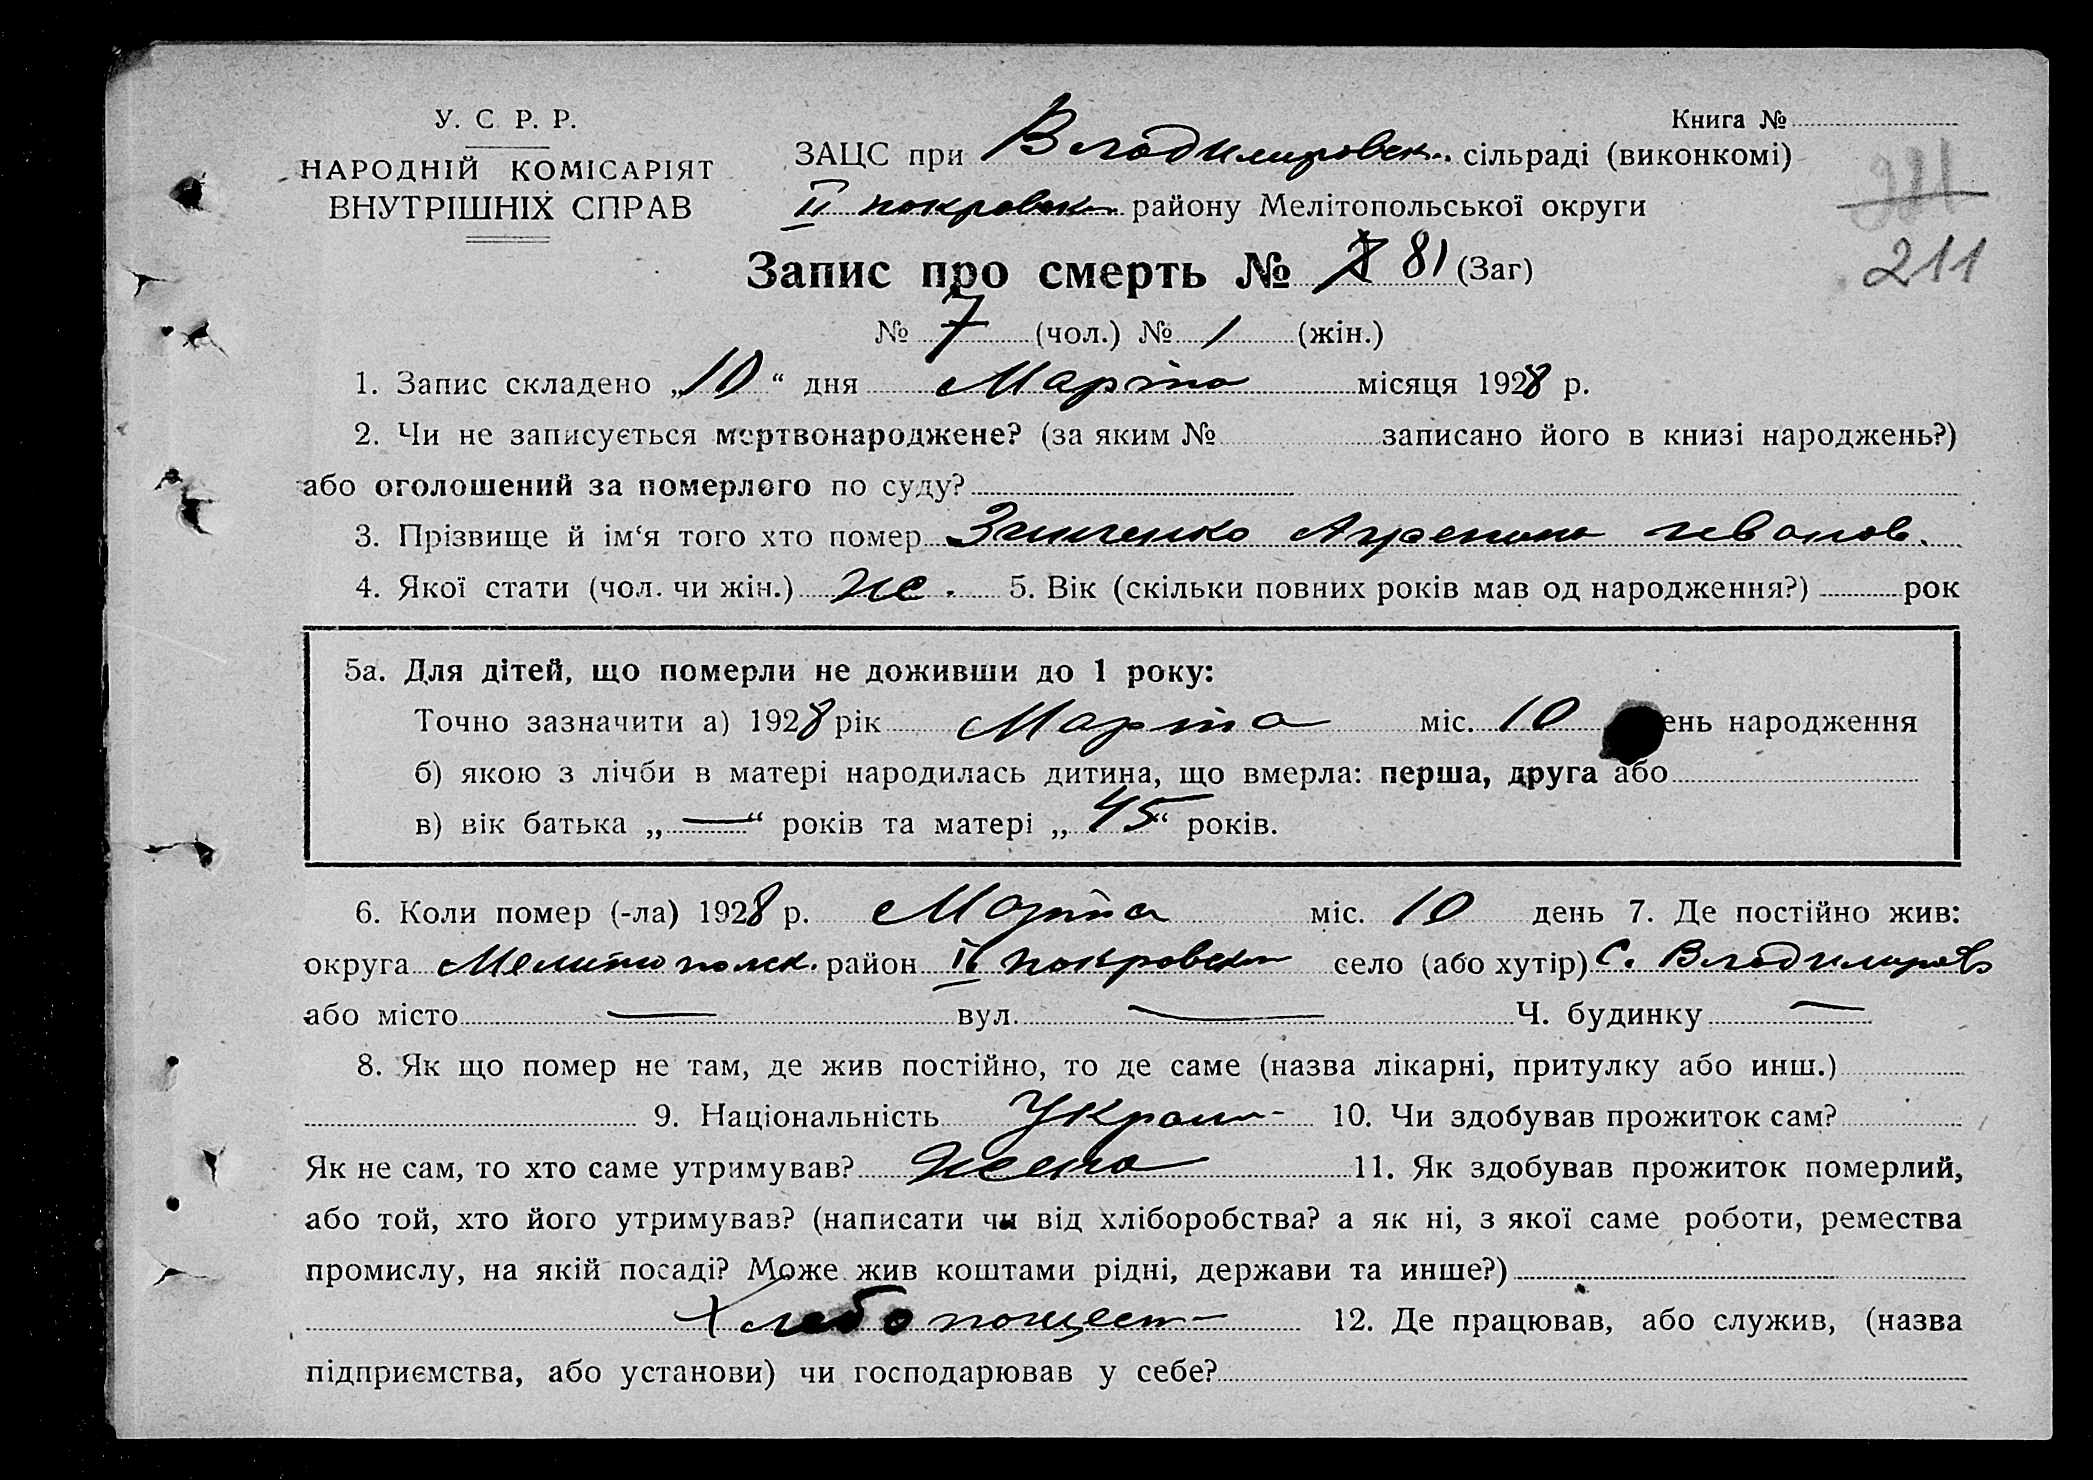 У. С. Р. Р.
НАРОДНІЙ КОМІСАРІЯТ
ВНУТРІШНІХ СПРАВ
Книга №
ЗАЦС при Владимировск. сільраді (виконкомі)
ІІ покровск районy Мелітопольської округи
211
Запис про смерть № 81 (Заг)
№ 7 (чол.) № 1 (жін.)
1. Запис складено „10“ дня Марта місяця 1928 р.
2. Чи не записується мертвонароджене? (за яким № записано його в книзі народжень?)
або оголошений за померлого по суду?
3. Прізвище й ім‘я того хто помер Зинченко Агрепина Иванов.
4. Якої стати (чол. чи жін.) же. 5. Вік (скільки повних років мав од народження?) рок
5а. Для дітей, що померли не доживши до 1 року:
Точно зазначити а) 1928 рік Марта міс. 10 ень народження
б) якою з лічби в матері народилась дитина, що вмерла: перша, друга або
в) вік батька „—“ років та матері „45“ років.
6. Коли помер (-ла) 1928 р. Марта міс. 10 день 7. Де постійно жив:
округа Мелитополск. район ІІ покровск село (або хутір) с. Владимиров
або місто — вул. — Ч. будинку —
8. Як що помер не там, де жив постійно, то де саме (назва лікарні, притулку або инш.)
9. Національність Украи- 10. Чи здобував прожиток сам?
Як не сам, то хто саме утримував? 11. Як здобував прожиток померлий,
або той, хто його утримував? (написати чи від хліборобства? а як ні, з якої саме роботи, ремества
промислу, на якій посаді? Може жив коштами рідні, держави та инше?)
Хлебопощест- 12. Де працював, або служив, (назва
підприємства, або установи) чи господарював у себе?